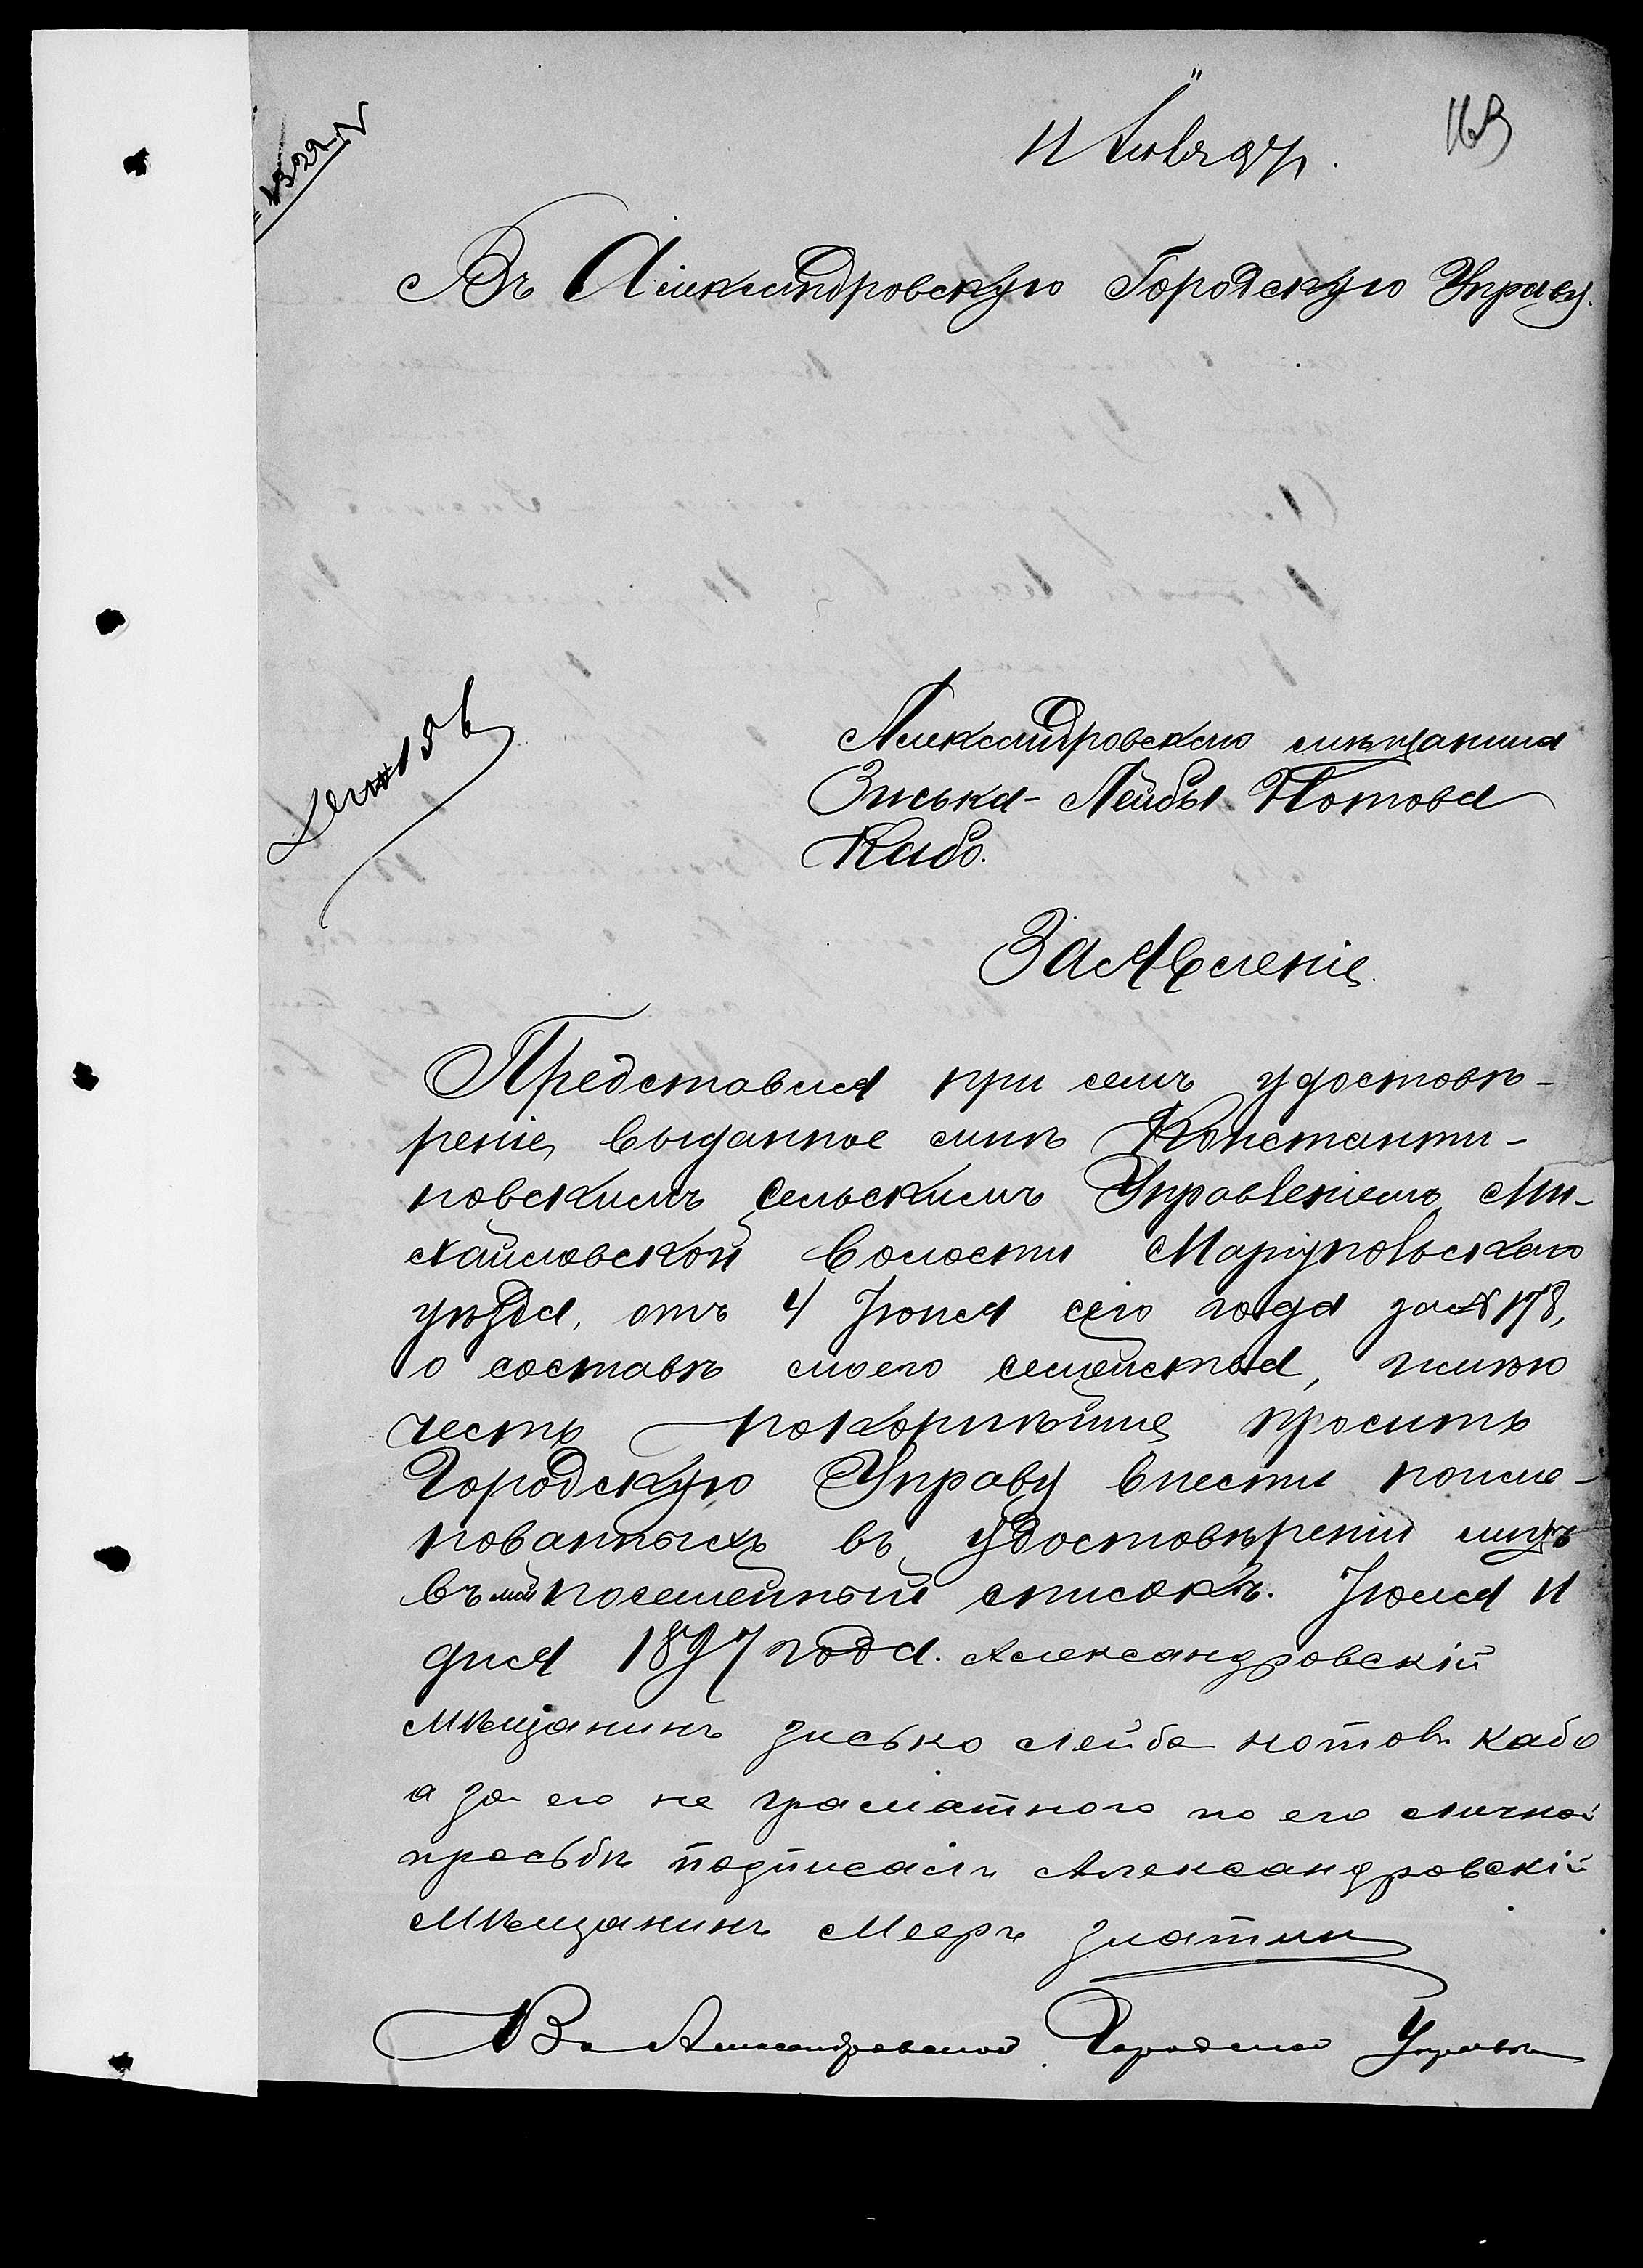 169
1322
Въ Александровскую Городскую Управу.
Александровскаго мѣщанина
Зиська-Лейбы Нотова
Кабо.
Заявленіе.
Представляя при семъ удостовѣ-
реніе, выданное мнѣ Константи-
новскимъ Сельскимъ Управленіемъ, Ми-
хайловской волости Маріупольскаго
уѣзда, отъ 4 Іюня сего года за № 178,
о составѣ моего семейства, имѣю
честь покорнѣйше просить
Городскую Управу внести поиме-
нованныхъ въ удостовѣреніи лицъ
въ мой посемейный списокъ. Іюля 11
дня 1897 года. Александровскій
Мѣщанинъ Зисько Лейба нотовъ Кабо
а за его не граматного по его личной
просьбѣ подписалъ Александровскій
Мѣщанинъ Мееръ Златин
Въ Александровской Городской Управѣ